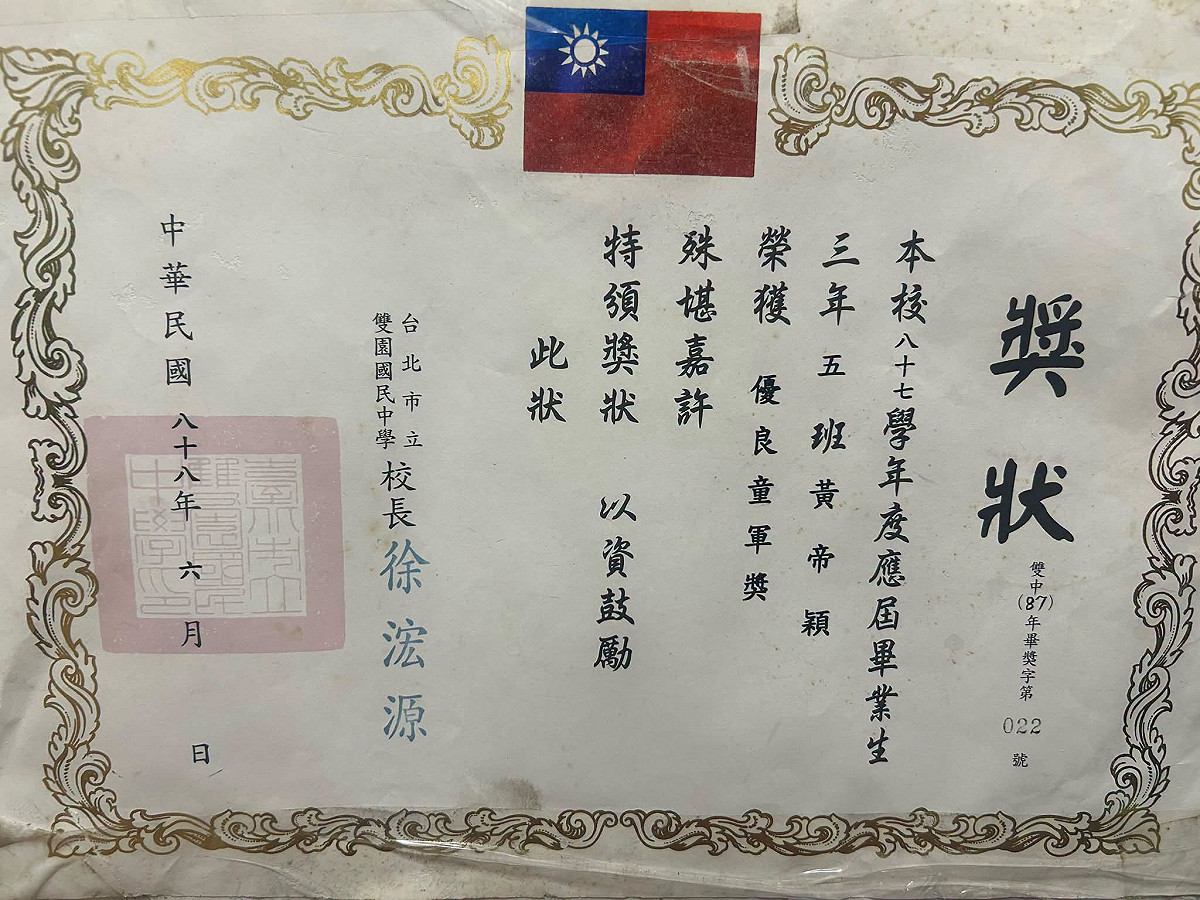 獎狀
雙中(87)年畢獎字第022號
本校八十七學年度應屆畢業生
三年五班黃帝穎
榮獲優良童軍獎
殊堪嘉許
特頒獎狀 以資鼓勵
此狀
台北市立
雙園國民中學
校長徐浤源
中華民國八十八年六月 日